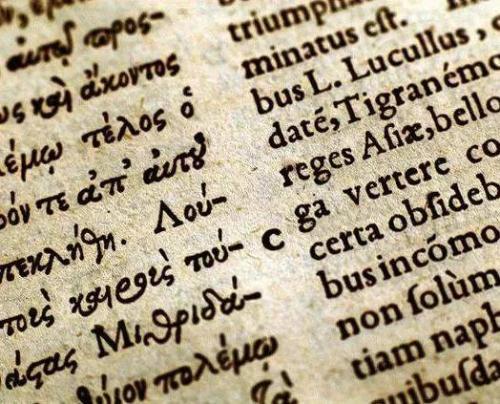 αὐτοῦ προς-
καὶ ἄκοντος
λέμῳ τέλος ὁ
ρόν τε ἀπ' αὐτοῦ
πεκλήθη. Λού-
τού-
Μιθριδά-
πολέμῳ
triumpha
minatus eſt.
bus L. Lucullus,
datē, Tigranémo
reges Aſiæ, bello
c ga vertere co
certa obſideb
bus incómo
non ſolùm
tiam naph
quibuſda